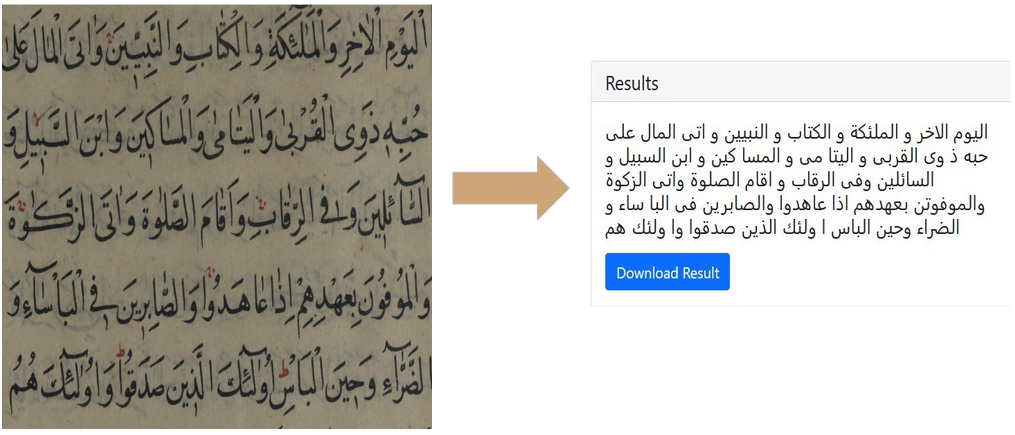 اَلْيَوْمِ الْاٰخِرِ وَالْمَلٰٓئِكَةِ وَالْكِتَابِ وَالنَّبِيّٖنَ وَاٰتَى الْمَالَ عَلٰى
حُبِّهٖ ذَوِى الْقُرْبٰى وَالْيَتَامٰى وَالْمَسَاكٖينَ وَابْنَ السَّبٖيلِ وَ
السَّٓائِلٖينَ وَفِى الرِّقَابِ وَاَقَامَ الصَّلٰوةَ وَاٰتَى الزَّكٰوةَ
وَالْمُوفُونَ بِعَهْدِهِمْ اِذَا عَاهَدُوا وَالصَّابِرٖينَ فِى الْبَاْسَٓاءِ وَ
الضَّرَّٓاءِ وَحٖينَ الْبَاْسِ اُولٰٓئِكَ الَّذٖينَ صَدَقُوا وَاُولٰٓئِكَ هُمُ
Results
اليوم الاخر و الملئكة و الكتاب و النبيين و اتى المال على
حبه ذ وى القربى و اليتا مى و المسا كين و ابن السبيل و
السائلين وفى الرقاب و اقام الصلوة واتى الزكوة
والموفوتن بعهدهم اذا عاهدوا والصابرين فى البا ساء و
الضراء وحين الباس ا ولئك الذين صدقوا وا ولئك هم
Download Result